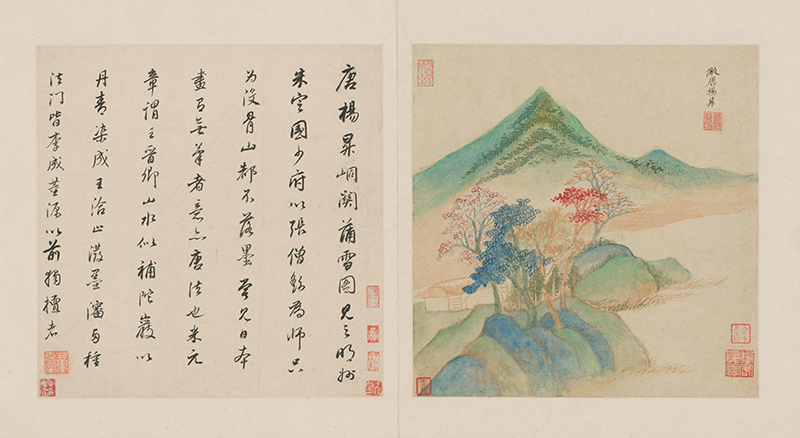 倣唐楊昇
唐楊昇峒關蒲雪圖見之明州
朱定國少府以張僧繇為師只
為沒骨山都不落墨曾見日本
畫有無筆者意亦唐法也米元
章謂王晉卿山水似補陀巖以
丹青染成王洽止潑墨瀋種
法門皆李成董源以前獨擅者